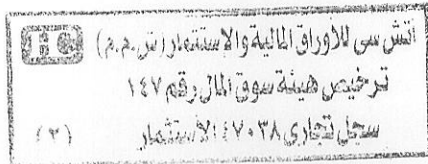 اتش سى للأوراق المالية والإستثمار (ش.م.م) HC
ترخيص هيئة سوق المال رقم ١٤٧
سجل تجارى ٤٧٠٣٨ الاستثمار
(٣)